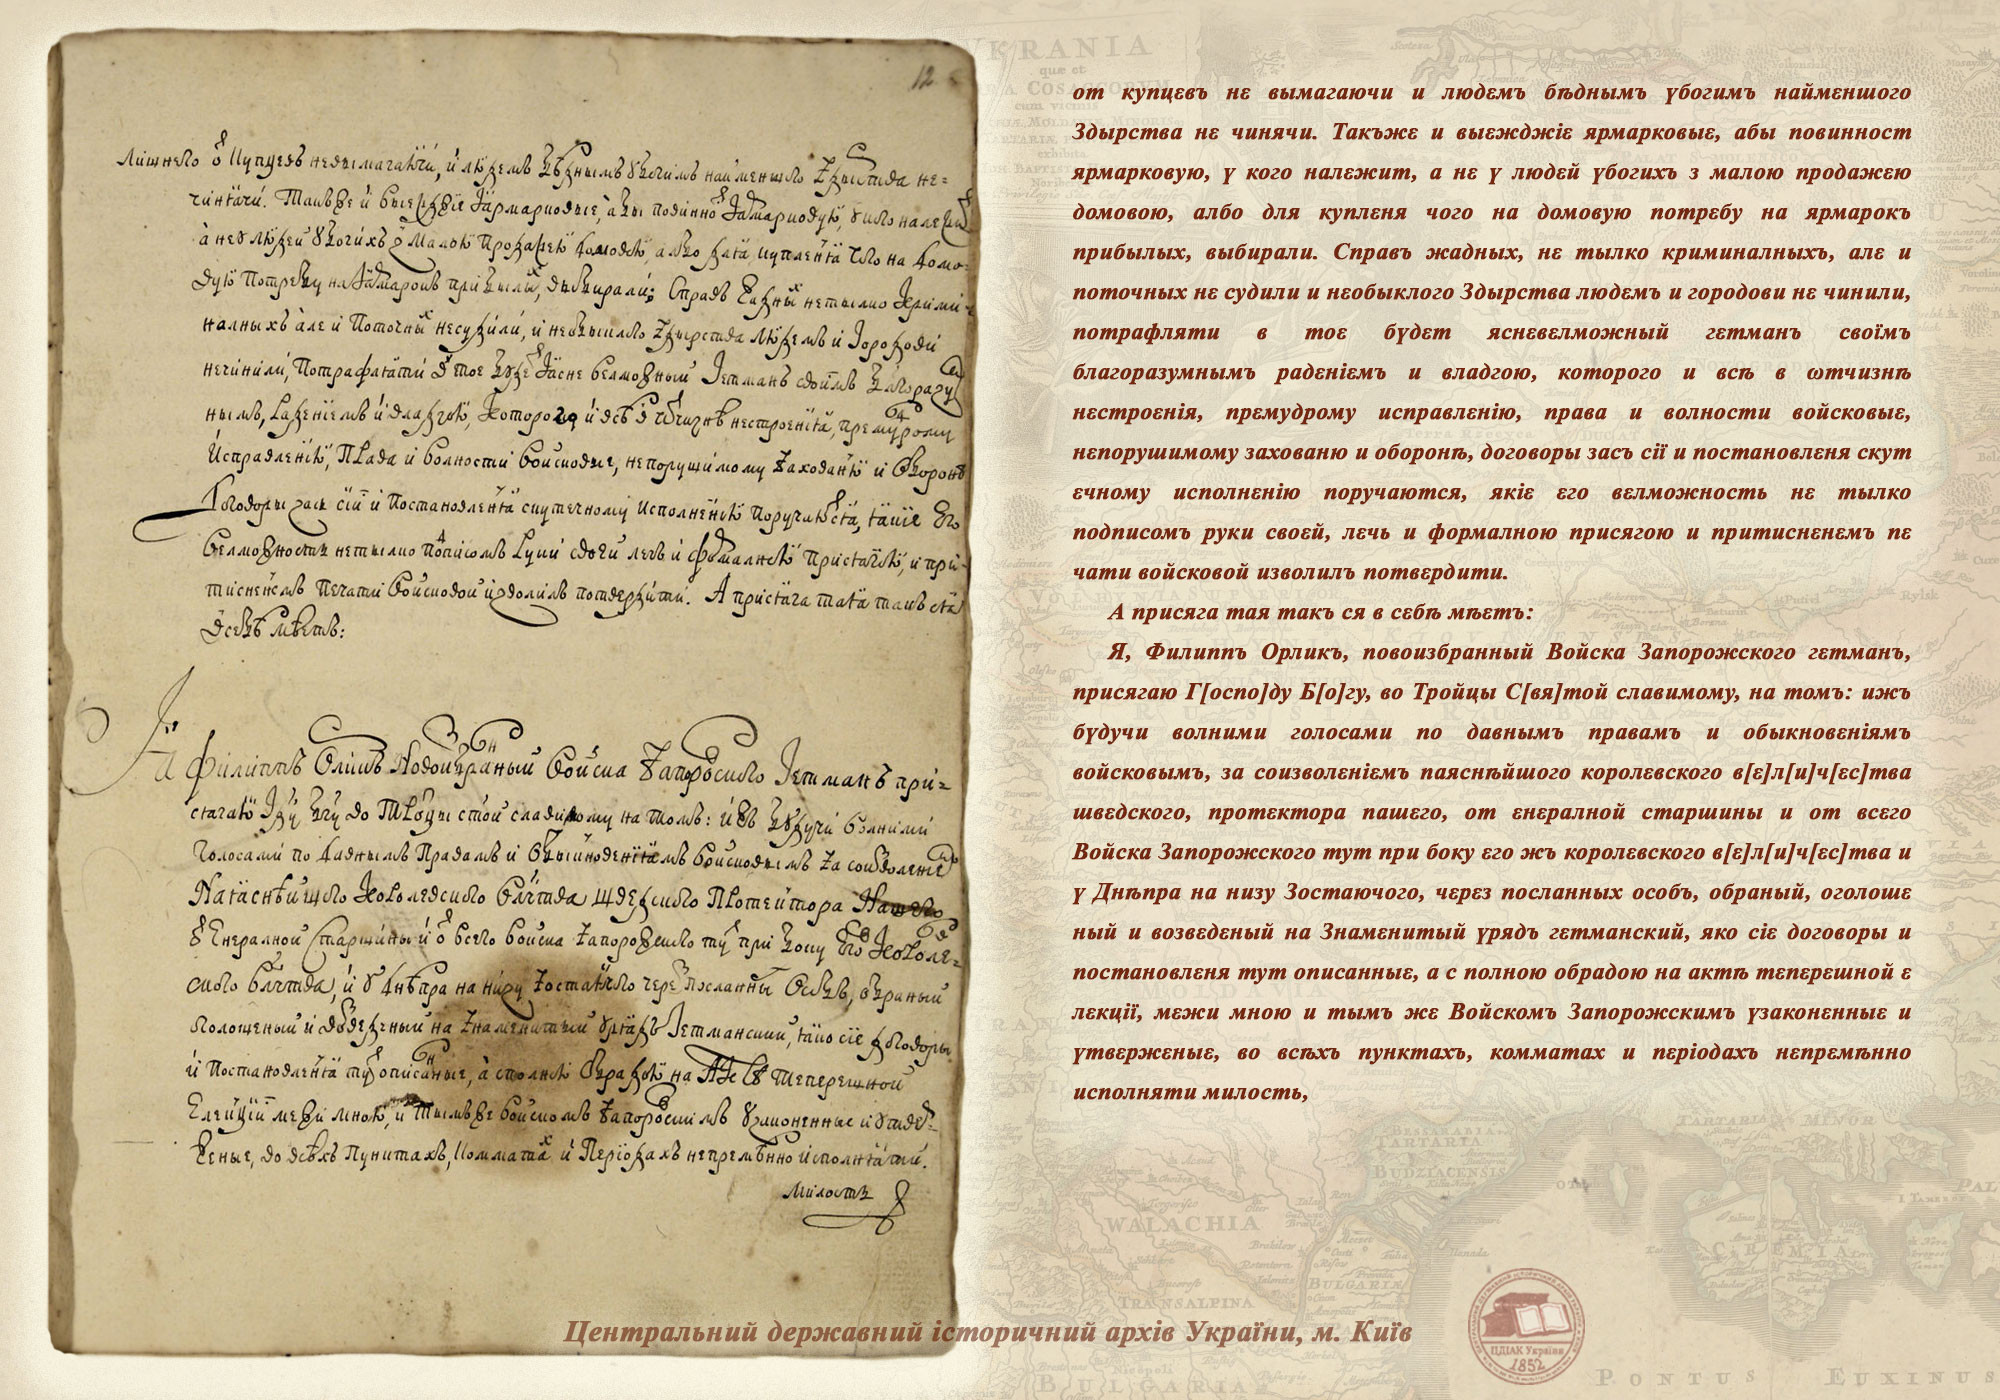 12
Лишнего ѿ купцевъ невымагаючи, и людемъ бѣднымъ убогимъ найменшого Здырства не=
чинячи. Такъже и выежджіе Ярмарковые, абы повинност Ярмарковую, у кого належит
а не у людей убогихъ з малою продажею домовою, албо для купленя чого на домо=
вую потребу на Ярмарокъ прибылых, выбирали; Справъ жадных не тылко Кримі=
налныхъ але и поточных не судили, и необыклого Здырства людемъ и городови
нечинили, потрафляти в тое будет Ясне велможный Гетманъ своимъ благоразу
нымъ, радениемъ и владгою, которого и всѣ в ѿчизнѣ нестроения, премудрому
Исправлению, Права и волности войсковые, непорушимому Захованю и Оборонѣ
Договоры засъ сіи и постановленя скутечному исполнению поручаются, якие Его
Велможность не тылко подписомъ руки своей лечъ и формалною присягою, и при=
тисненемъ печати войсковой изволилъ потвердити. А присяга тая такъ ся
в себѣ мѣетъ:
Я Филиппъ Орликъ Новоизбранный Войска Запорожского Гетманъ при=
сягаю Гду Бгу во Тройцы стой славимому на томъ: ижъ будучи волними
голосами по давнымъ правамъ и обыкновениямъ войсковымъ за соизволение
Наяснѣйшого Королевского Влчтва Шведского Протектора Нашего
ѿ Енералной Старшины и ѿ всего войска Запорожского тут при боку Его Королев=
ского влчтва, и у Днѣпра на низу Зостаючого чере посланных Особъ, обраный
оголошеный и возведеный на Знаменитый урядъ Гетманский, яко сіе договоры
и постановленя тут описанные, а сполною обрадою на Актѣ теперешной
Елекціи межи мною, и тымъ же войскомъ Запорожскимъ узаконенные и утвер=
женые, во всѣхъ пунктахъ, комматах и періодахъ непремѣнно исполняти.
Милость
от купцєвъ нє вымагаючи и людємъ бѣднымъ үбогимъ наймєншого
Здырства нє чинячи. Такъжє и выєжджіє ярмарковыє, абы повинност
ярмарковую, ү кого налєжит, а нє ү людєй үбогихъ з малою продажєю
домовою, албо для куплєня чого на домовую потрєбу на ярмарокъ
прибылых, выбирали. Справъ жадных, нє тылко криминалныхъ, алє и
поточных нє судили и нєобыклого Здырства людємъ и городови нє чинили,
потрафляти в тоє бүдєт яснєвєлможный гєтманъ своїмъ
благоразумнымъ радєніємъ и владгою, которого и всѣ в ѡтчизнѣ
нєстроєнія, прємудрому исправлєнію, права и волности войсковыє,
нєпорушимому захованю и оборонѣ, договоры засъ сії и постановлєня скут
єчному исполнєнію поручаются, якіє єго вєлможность нє тылко
подписом руки своєй, лєчь и формалною присягою и притиснєнєм пє
чати войсковой изволилъ потвєрдити.
А присяга тая такъ ся в сєбѣ мѣєтъ:
Я, Филиппъ Орликъ, повоизбранный Войска Запорожского гєтманъ,
присягаю Г[оспо]ду Б[о]гу, во Тройцы С[вя]той славимому, на томъ: ижъ
бүдучи волними голосами по давнымъ правамъ и обыкновєніямъ
войсковымъ, за соизволєніємъ паяснѣйшого королєвского в[є]л[и]ч[єс]тва
швєдского, протєктора пашєго, от єнєралной старшины и от всєго
Войска Запорожского тут при боку єго жъ королєвского в[є]л[и]ч[єс]тва и
ү Днѣпра на низу Зостаючого, чєрєз посланных особъ, обраный, оголошє
ный и возвєдєный на Знамєнитый үрядъ гєтманский, яко сіє договоры и
постановлєня тут описанныє, а с полною обрадою на актѣ тєпєрєшной є
лєкції, мєжи мною и тымъ жє Войскомъ Запорожскимъ үзаконєнныє и
үтвєржєныє, во всѣхъ пунктахъ, комматах и пєріодахъ нєпрємѣнно
исполняти милость,
WALACHIA
TRANSALPINA
BULGARIA
TARTARIA
BUDZIACENSIS
TARTARIA MINOR
CRIMEA
PONTUS EUXINUS
Центральний державний історичний архів України, м. Київ
ЦДІАК України
1852